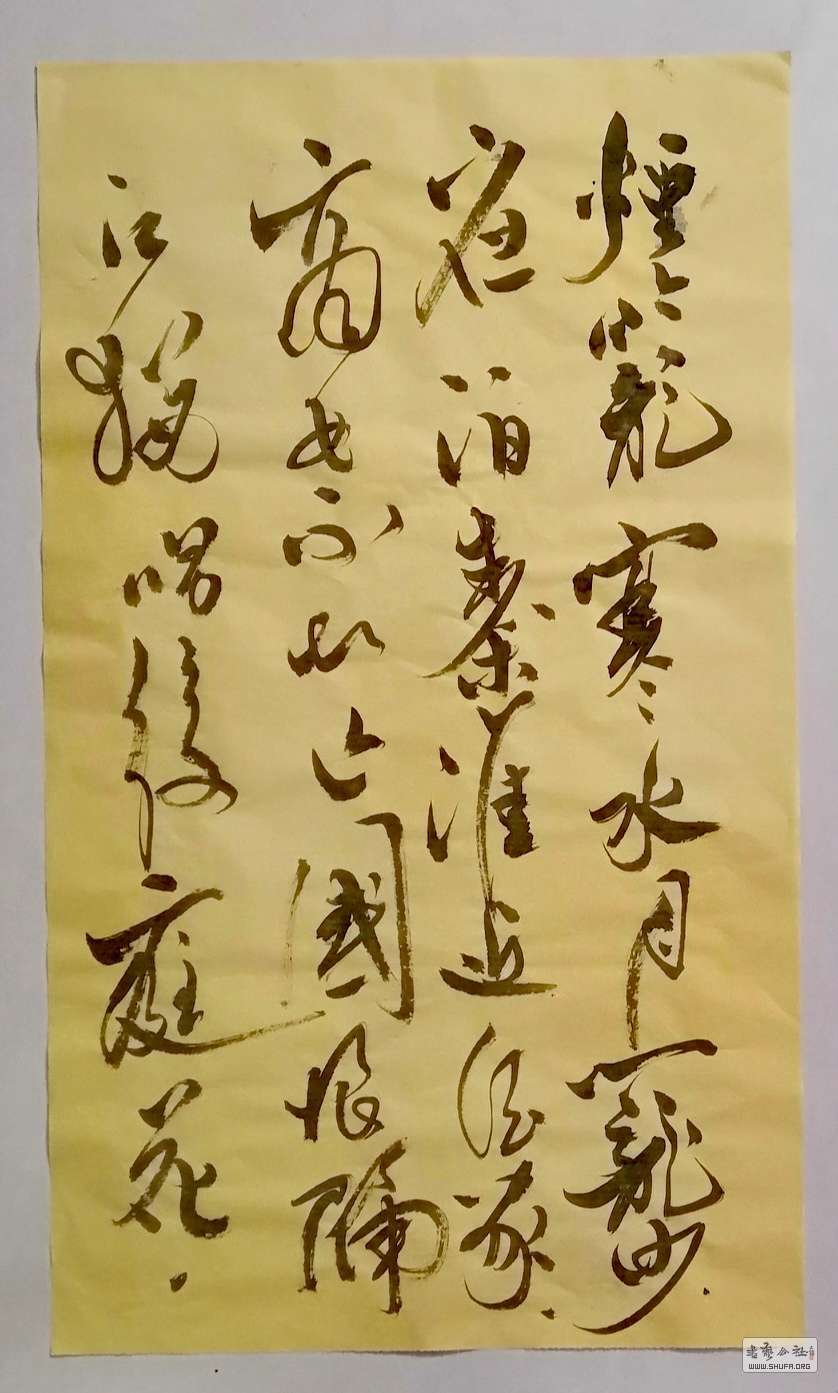 煙籠寒水月籠沙
夜泊秦淮近酒家
商女不知亡國恨隔
江猶唱後庭花
書法公社
WWW.SHUFA.ORG